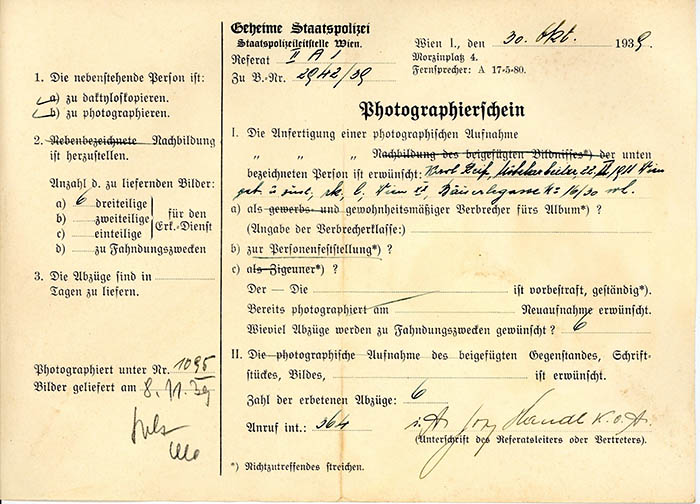 1. Die nebenstehende Person ist:
a) zu daktyloskopieren.
b) zu photographieren.
2. Nebenbezeichnete Nachbildung
ist herzustellen.
Anzahl d. zu liefernden Bilder:
a) 6 dreiteilige
b) zweiteilige
c) einteilige
für den
Erk.-Dienst
d) zu Fahndungszwecken
3. Die Abzüge sind in
Tagen zu liefern.
Photographiert unter Nr. 1095
Bilder geliefert am 8. 11. 39
Geheime Staatspolizei
Staatspolizeileitstelle Wien.
Referat II A 1
Zu B.-Nr. 2942/39
Wien I., den 30. Okt. 1939.
Morzinplatz 4.
Fernsprecher: A 17-5-80.
Photographierschein
I. Die Anfertigung einer photographischen Aufnahme
" " " Nachbildung des beigefügten Bildnisses*) der unten
bezeichneten Person ist erwünscht: Karl 1911 Wien
geb. u. zust., rk., l., Wien 16/30 wh.
a) als gewerbs- und gewohnheitsmäßiger Verbrecher fürs Album*) ?
(Angabe der Verbrecherklasse:)
b) zur Personenfeststellung*) ?
c) als Zigeuner*) ?
Der — Die ist vorbestraft, geständig*).
Bereits photographiert am Neuaufnahme erwünscht.
Wieviel Abzüge werden zu Fahndungszwecken gewünscht ? 6
II. Die photographische Aufnahme des beigefügten Gegenstandes, Schrift-
stückes, Bildes, ist erwünscht.
Zahl der erbetenen Abzüge: 6
Anruf int.: 364
i. A. Handl K.O.A.
(Unterschrift des Referatsleiters oder Vertreters).
*) Nichtzutreffendes streichen.